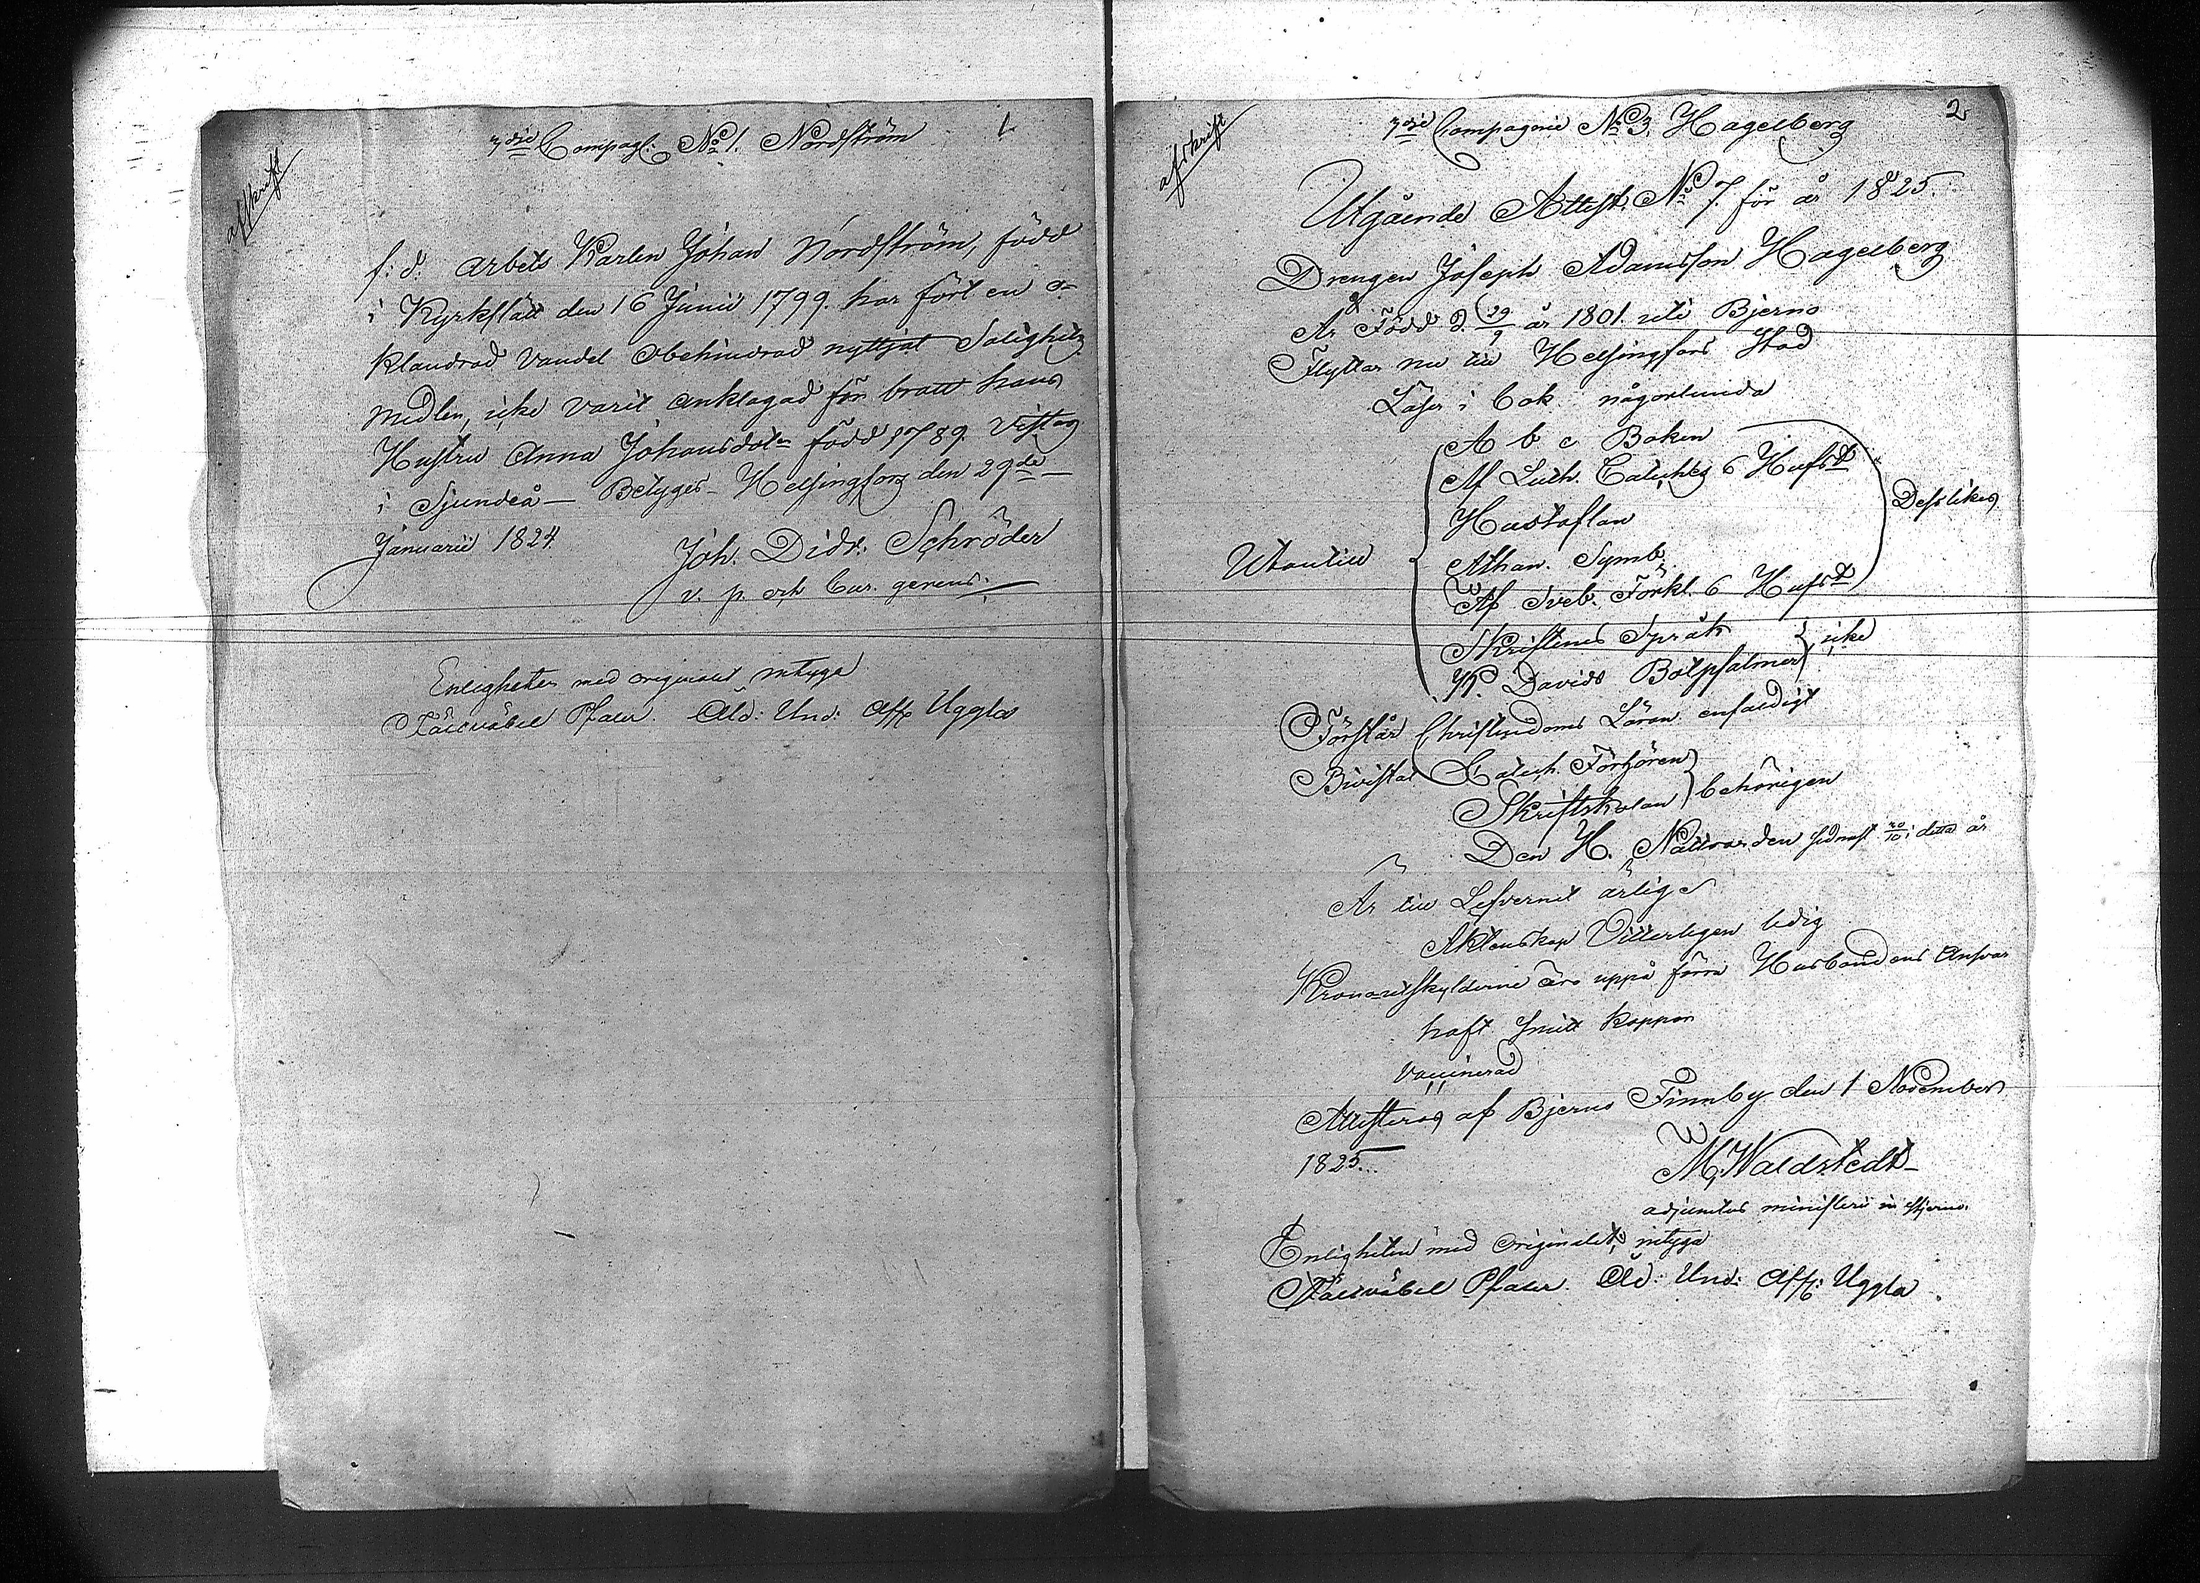 3die Compagl: No 1. Nordström 1.
afskrift
f: d: arbets Karlen Johan Nordström, född
i Kyrkslätt den 16 Junii 1799. har fört en o-
klandrad vandel obehindrad nyttjat Salighetz
medlen, icke varit anklagad för brott hans
Hustru Anna Johansdotr född 1789. Vistas
i Sjundeå — Betygas — Helsingfors den 29de
Januarii 1824.
Joh. Didr: Schröder
v. p. och Cur. gerens.
Enligheten med originalet intyga
Fältväbel Pfaler. Äld: Und: Aff: Uggla
2
3die Compagnie No 3, Hagelberg
afskrift
Utgående Attest. No 7. för år 1825.
Drengen Joseph Adamsson Hagelberg
Är Född d. 29/9 år 1801. uti Bjerno
Flyttar nu till Helsingfors Stad
Läser i bok någorlunda
A b c Boken
Af Luth. Catechés 6 Hufst
Hustaflan
Desslikes
Utantill
Athan. Symb.
Af Sveb. Förkl. 6 Hufst
Skriftenes Språk
icke
K. Davids Botpsalmer
Förstår Christendoms Läran enfaldigt
Bivistat Catech. Förhören
Skriftskolan behörigen
Den H. Nattvarden sidmst 20/10 i detta år
Är till Lefvernet ärlig
Äktenskap Vitterligen ledig
Kronoutskylderne äro uppå förra Husbondens Ansvar
haft Smitt koppor
Vaccinerad
Attesteras af Bjerno Finnby den 1 November
1825.
M. Waldstedt
adjunctus ministerii in Bjerno.
Enligheten med originalet, intyga
Fältväbel Pfaler. Äld: Und: Aff: Uggla.